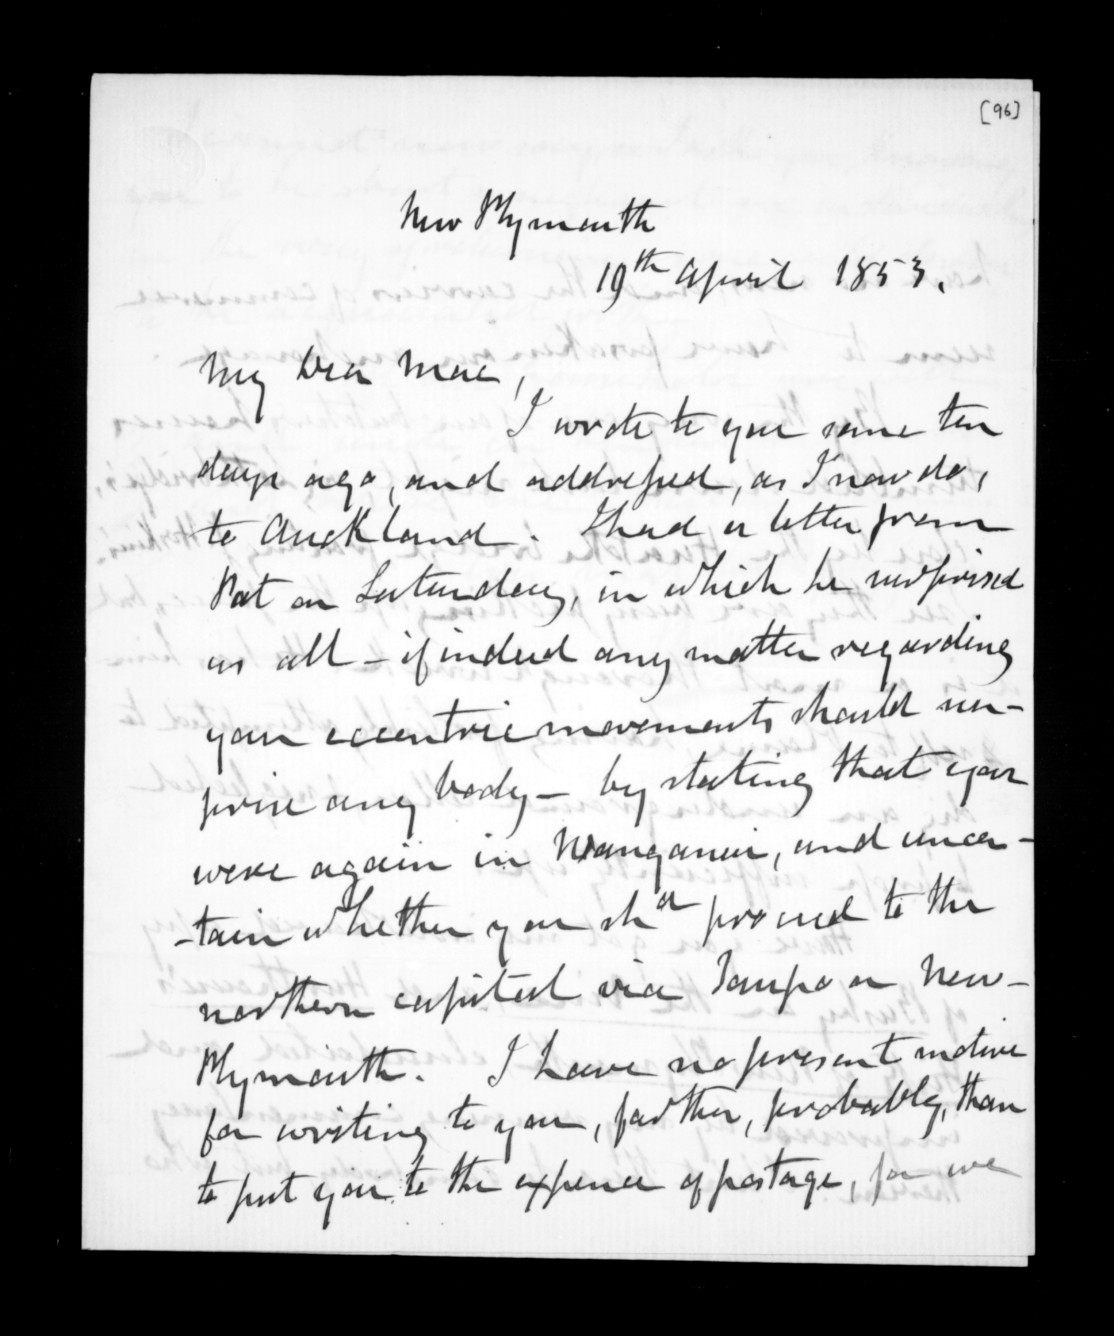 [96]
New Plymouth
19th April 1853.
My Dear Mac,
I wrote to you some ten
days ago, and addressed, as I now do,
to Auckland. I had a letter from
Pat on Saturday, in which he surprised
us all - if indeed any matter regarding
your eccentric movements should sur-
prise any body - by stating that you
were again in Wanganui, and uncer-
-tain whether you shd proceed to the
northern capital via Taupo or New-
Plymouth. I have no present motive
for writing to you, farther, probably, than
to put you to the expence of postage, for we